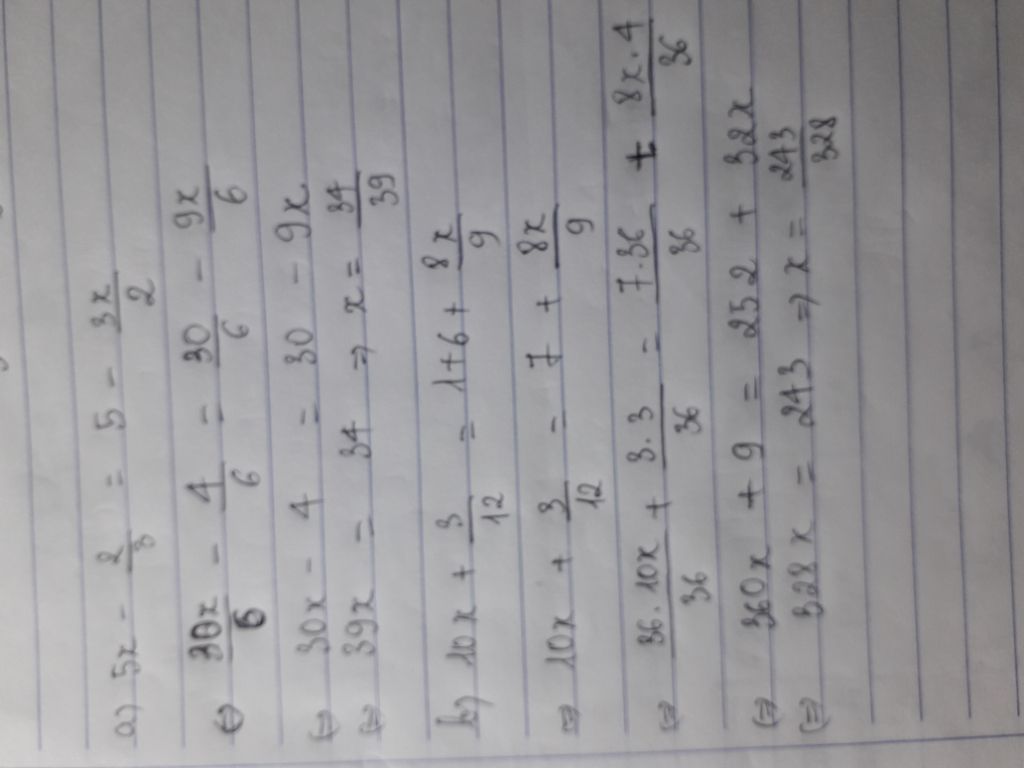 a) 5x - 2/3 = 5 - 3x/2
(=) 30x/6 - 4/6 = 30/6 - 9x/6
(=) 30x - 4 = 30 - 9x
(=) 39x = 34 => x = 34/39
b) 10x + 3/12 = 1+6+ 8x/9
(=) 10x + 3/12 = 7 + 8x/9
(=) 36.10x/36 + 3.3/36 = 7.36/36 + 8x.4/36
(=) 360x + 9 = 252 + 32x
(=) 328x = 243 => x = 243/328